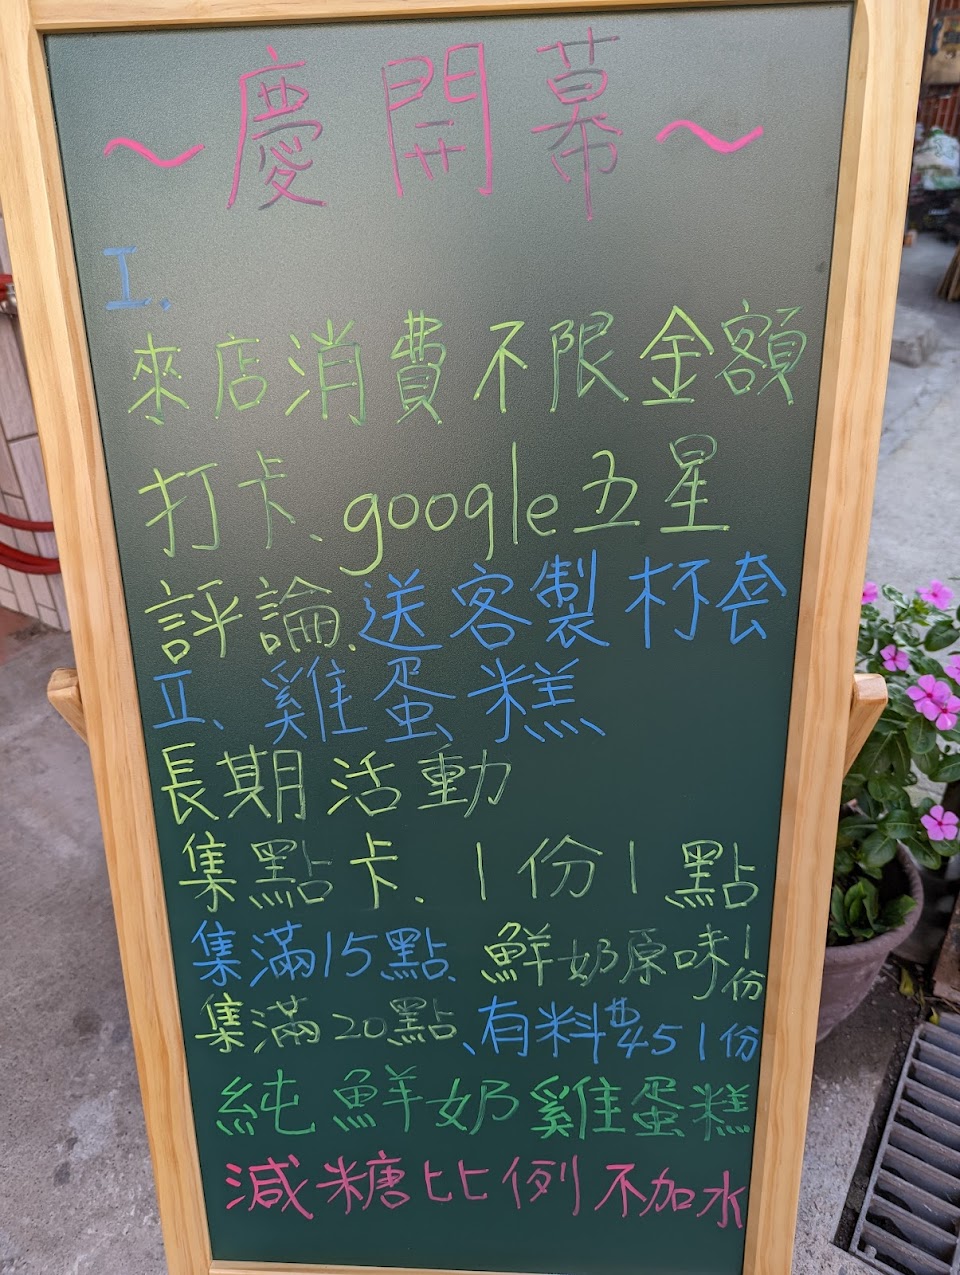 ～慶開幕～
I.
來店消費不限金額
打卡、google五星
評論、送客製杯套
II、雞蛋糕
長期活動
集點卡、1份1點
集滿15點、鮮奶原味1份
集滿20點、有料45 1份
純鮮奶雞蛋糕
減糖比例不加水